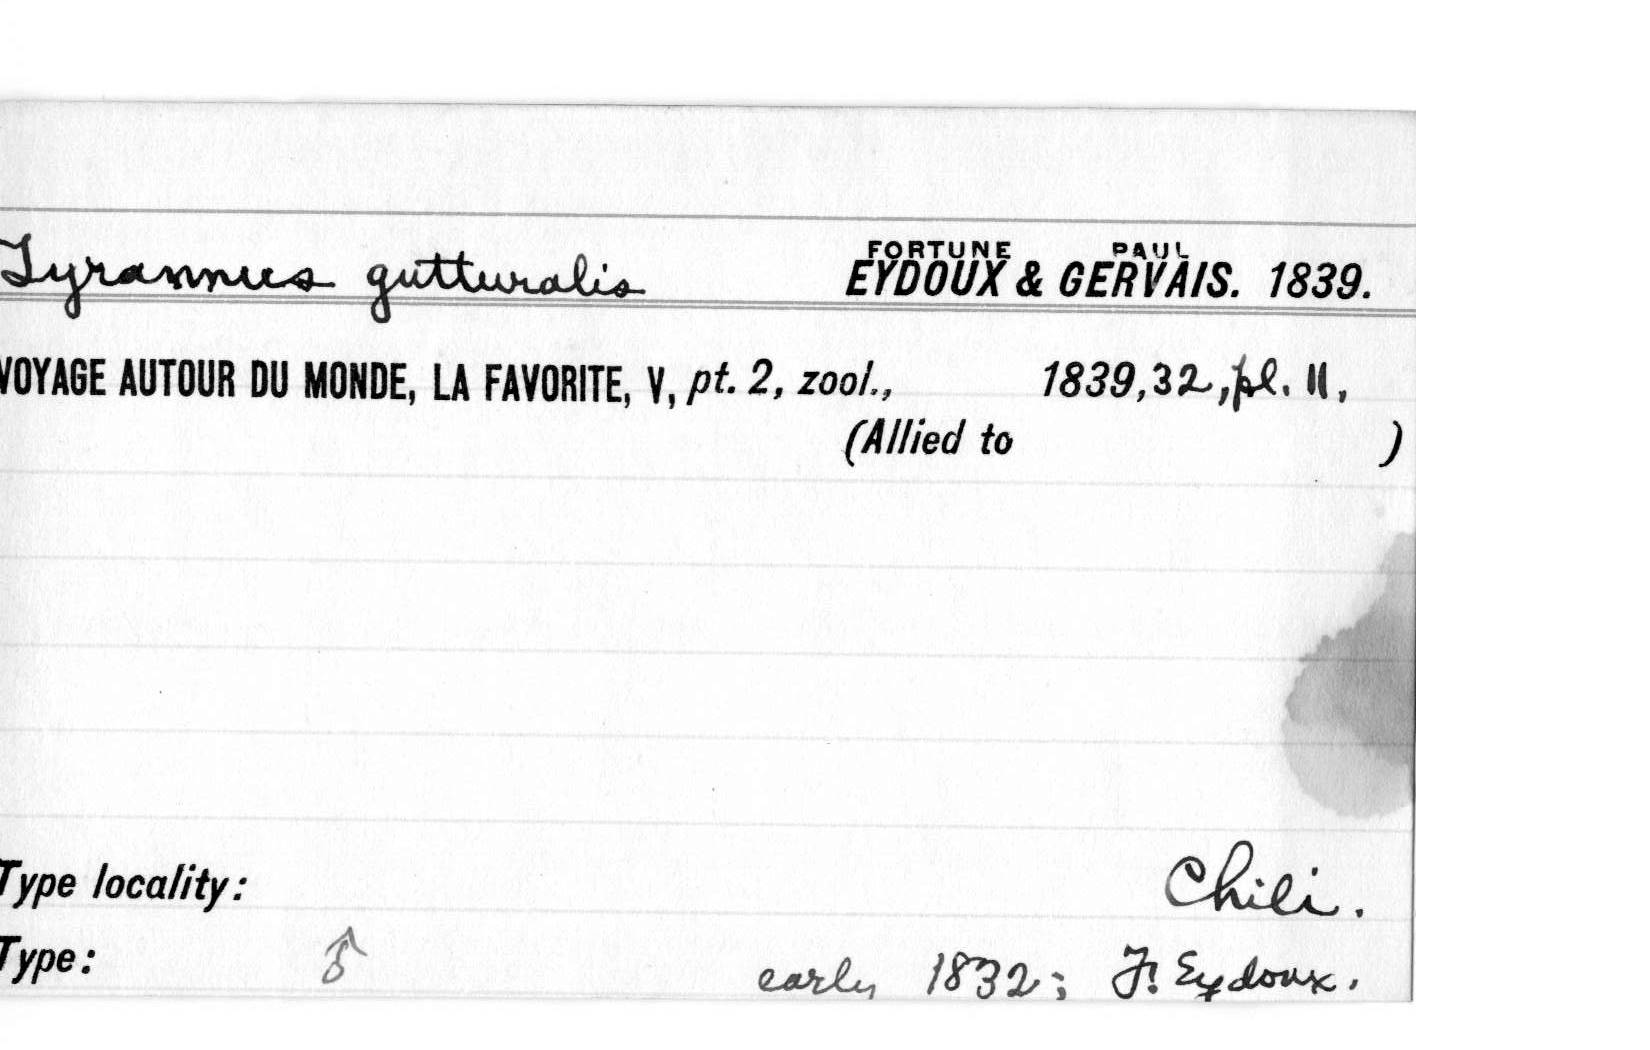 Tyrannus gutturalis FORTUNE PAUL
EYDOUX & GERVAIS. 1839.
VOYAGE AUTOUR DU MONDE, LA FAVORITE, V, pt. 2, zool., 1839, 32, pl. 11,
(Allied to )
Type locality: Chili.
Type: ♂ early 1832; F. Eydoux.